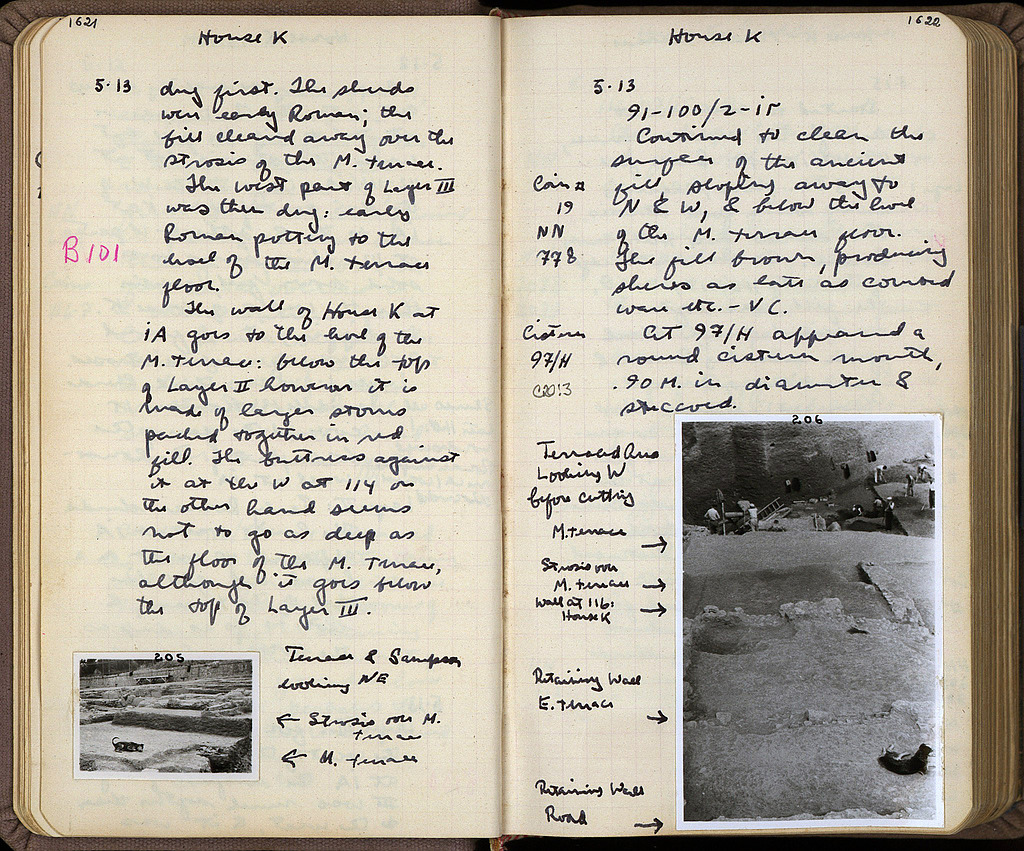 1621
House K
5·13 dug first. The sherds
were early Roman; the
fill cleared away over the
strosis of the M. terrace.
The west part of Layer III
was then dug: early
B101
Roman pottery to the
level of the M. terrace
floor.
The wall of House K at
iA goes to the level of the
M. Terrace: below the top
of Layer II however it is
made of larger stones
packed together in red
fill. The buttress against
it at the W at 114 on
the other hand seems
not to go as deep as
the floor of the M. Terrace,
although it goes below
the top of Layer III.
205
Terrace & Sampson
looking NE
← Strosis over M.
terrace
← M. terrace
1622
House K
5·13
91-100/2-ir
Continued to clean the
surface of the ancient
fill, sloping away to
N & W, & below the level
of the M. terrace floor.
The fill brown, producing
sherds as late as combed
ware etc. - VC.
Coin #
19
NN
778
At 97/H appeared a
round cistern mouth,
.90 M. in diameter &
stuccoed.
Cistern
97/H
C2013
206
Terraced Area
Looking W
before cutting
M. terrace →
Strosis over
M. terrace →
Wall at 116: →
House K
Retaining Wall
E. terrace →
Retaining Wall
Road →